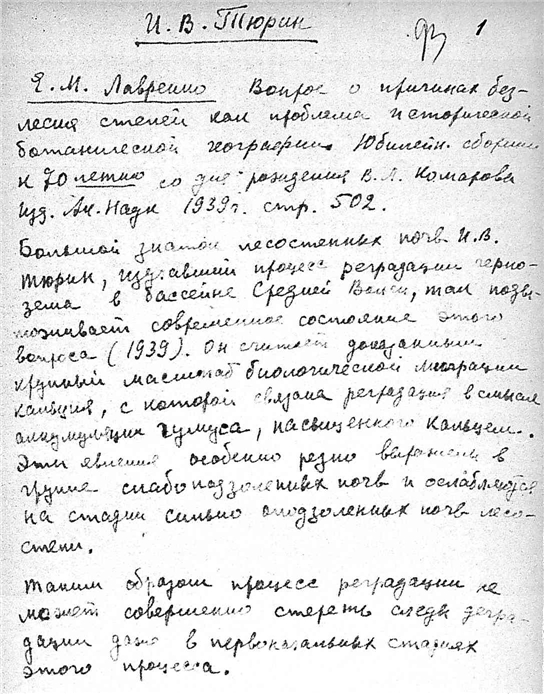 И. В. Тюрин
1
Е. М. Лавренко Вопрос о причинах без-
лесия степей как проблема исторической
ботанической географии. Юбилейн. сборник
к 70летию со дня рождения В. Л. Комарова
Изд. Ак. Наук 1939г. стр. 502.
Большой знаток лесостепных почв И. В.
Тюрин, изучавший процесс реградации черно-
зема в бассейне Средней Волги, так
современное состояние этого
вопроса (1939). Он считает доказанным
крупный масштаб биологической миграции
кальция, с которой связана реградация в смысле
аккумуляции гумуса, насыщенного кальцем.
Эти явления особенно резко выражены в
группе слабоподзоленных почв и ослабляются
на стадии сильно оподзоленных почв лесо-
степи.
Таким образом процесс реградации не
может совершенно стереть следы дегра-
дации даже в первоначальных стадиях
этого процесса.